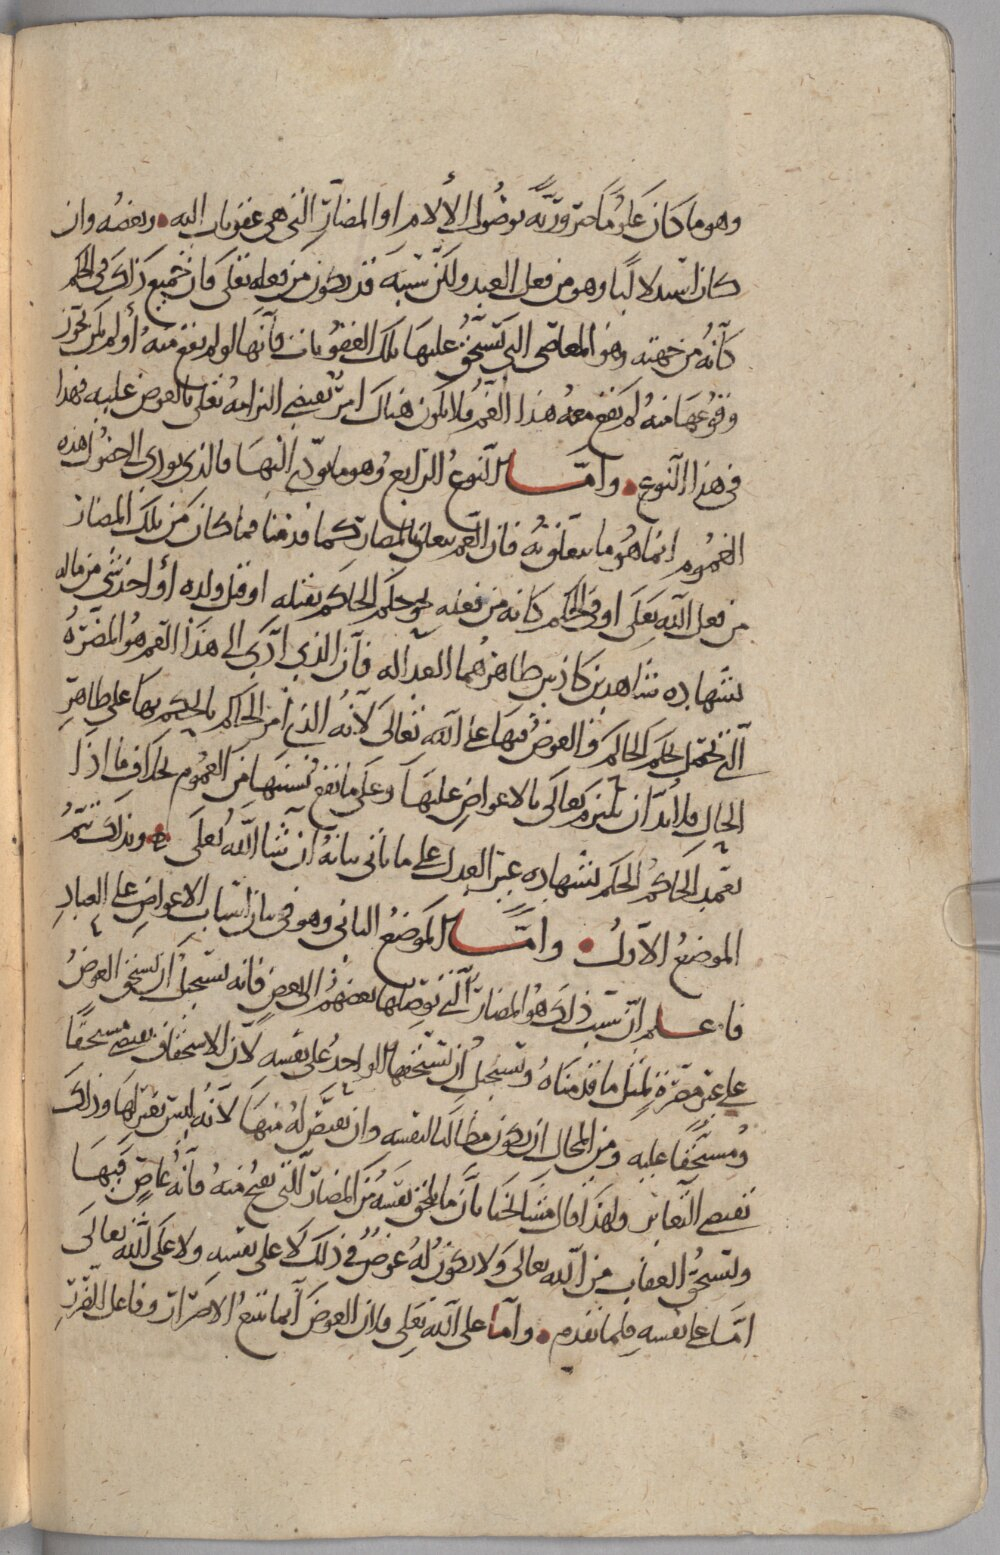 وهو ما كان علمًا ضروريّه بوصُول الألام او المضارّ التي هي عقوبات اليه • وبعضُه وان
كان استدلالیًا وهو من فعل العبد ولكن سببه قد يكون من فعله تعلى فان جميع ذلك في الحكم
كأنّه من جهته وهو المعاصي التي يستحقّ عليها تلك العقوبات فانّها لو لم تقع منهُ أو لم يكن يجوّز
وقوعها منه لم يقع معه هذا الغمّ فلا يكون هناك امرٌ يقتضي الزامهُ تعلى بالعوض عليه فهذا
في هذا النّوع • وامّا النّوع الرّابع وهو ما يؤدّي اليها فالذي يؤدي الى حصُول هذه
الغمُوم انما هو ما يتعلق به فان الغم يتعلق بالمضار كما قدمنا فما كان من تلك المضار
من فعل الله تعلى او في الحكم كانه من فعله نحو حكم الحاكم بقتله او قتل ولده أو اخذ شيء من ماله
بشهاده شاهدين كاذبين ظاهرهما العداله فان الذي ادّى الى هذا الغم هو المضرّة
التي تحصل بحكم الحاكم والعوض فيها على الله تعالى لأنه الذي امر الحاكم بالحكم بها على ظاهرِ
الحال فلا بدّ ان يلتزم تعالى بالاعواض عليها وعلى ما يقع بسببها من الغموم بخلاف ما اذا
تعمد الحاكمُ الحكم بشهاده غير العدل على ما ياتي بيانه ان شا الله تعلى • وبذلك تتمُّ
الموضعُ الاوّل • وامّا الموضع الثاني وهو في بيان اسباب الاعواض على العبادِ
فاعلم انّ سبب ذلك هو المضارّ التي يوصلها بعضهم الى بعض فانه يستحيل ان يستحق العوضُ
على غير مضرّة لمثل ما قدمناهُ ويستحيل ان يستحقها الواحدُ على نفسه لأن الاستحقاق يقتضي مستحقًّا
ومُستحَقًّا عليه ومن المحال ان يكون مطالبًا لنفسه وان يقتصّ لهُ منها لأنّه ليس بغيرٍ لها وذلك
يقتضي التّغاير ولهذا قال مشائخنا بأن ما يلحق نفسه من المضارّ التي تقبح منه فانّهُ عاصٍ فيها
ويستحقّ العقاب من الله تعالى ولا يكون لهُ عوضٌ في ذلك لا على نفسه ولا على الله تعالى
امّا على نفسه فلما تقدم • وامّا على الله تعلى فلان العوض انما يتبع الاضرار وفاعل الضّررِ